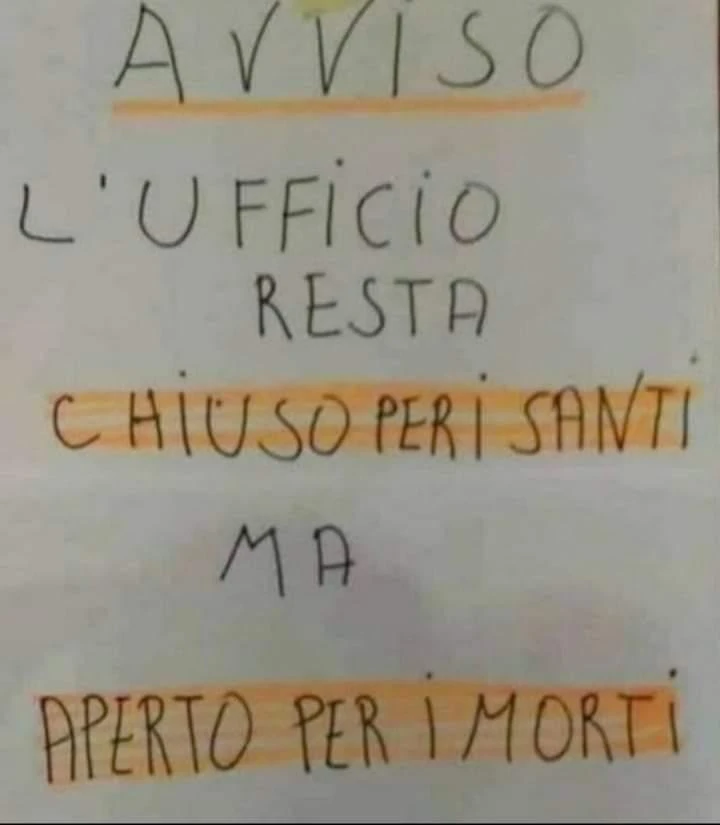 AVVISO
L'UFFICIO
RESTA
CHIUSO PER I SANTI
MA
APERTO PER I MORTI